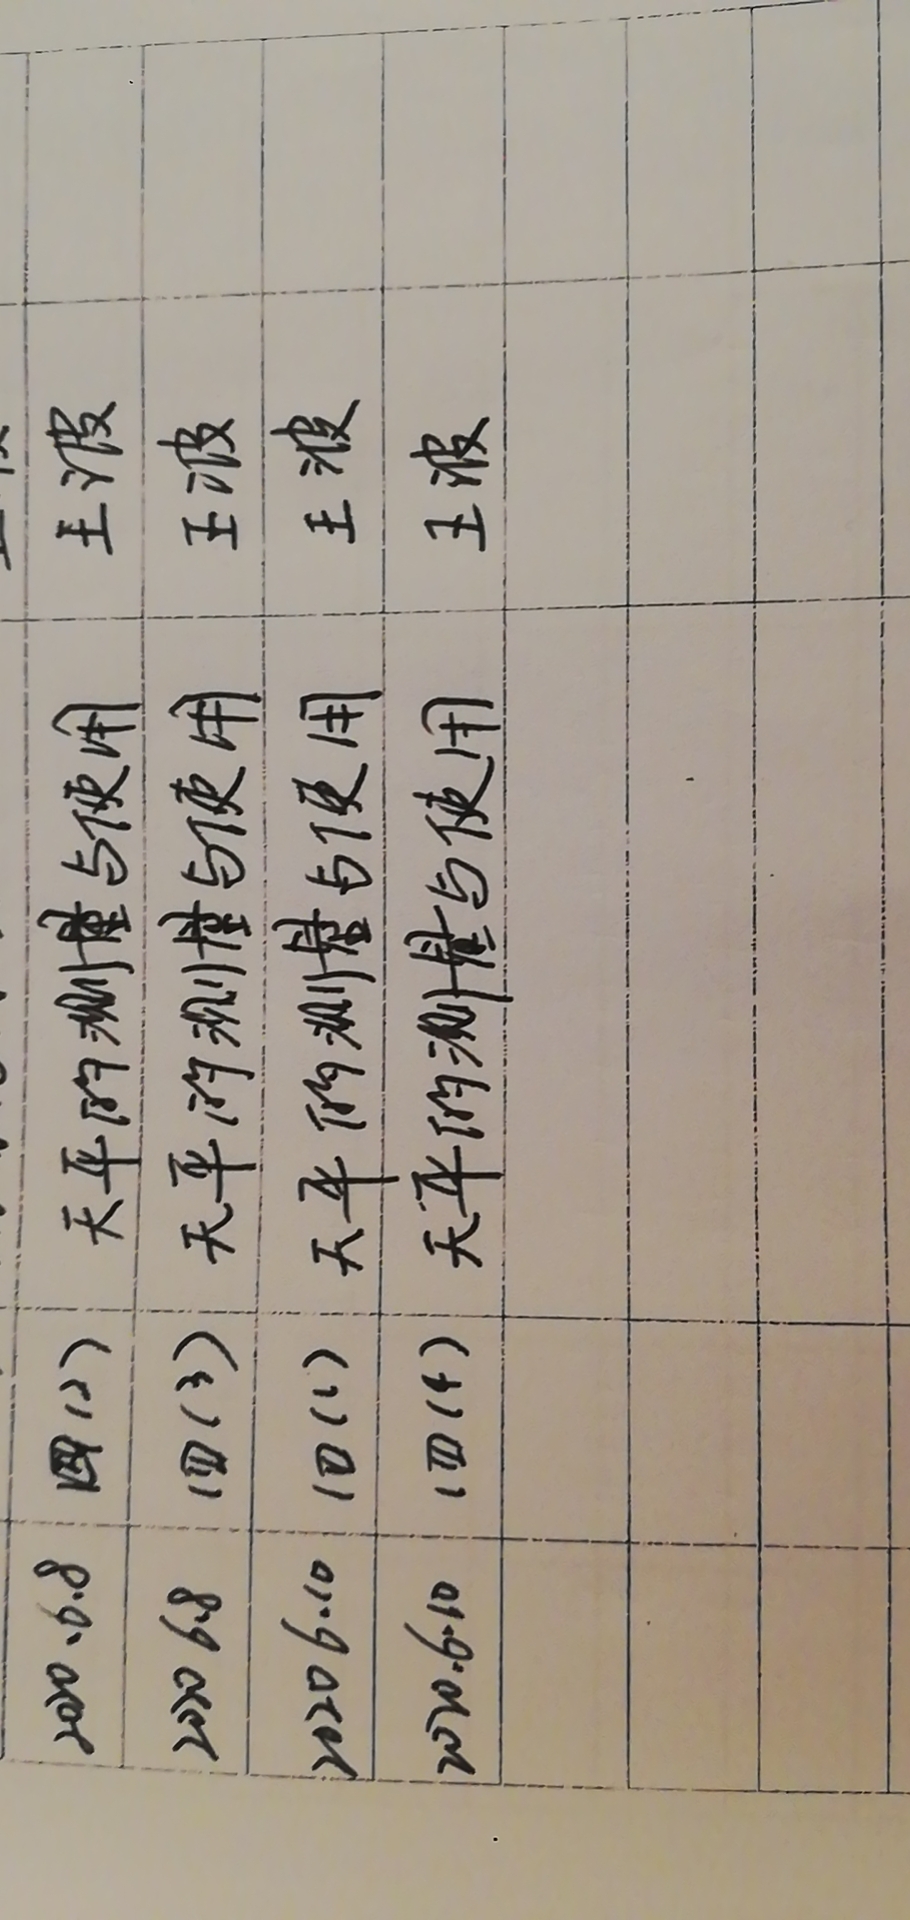 2020.9.8 四(2) 天平的测量与使用 王波
2020 9.8 四(3) 天平的测量与使用 王波
2020 9.10 四(1) 天平的测量与使用 王波
2020.9.10 四(4) 天平的测量与使用 王波